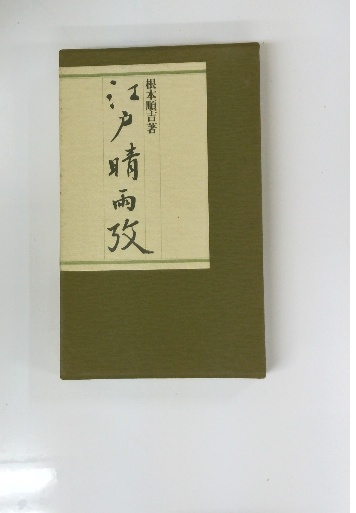 根本順吉著
江戸晴雨攷